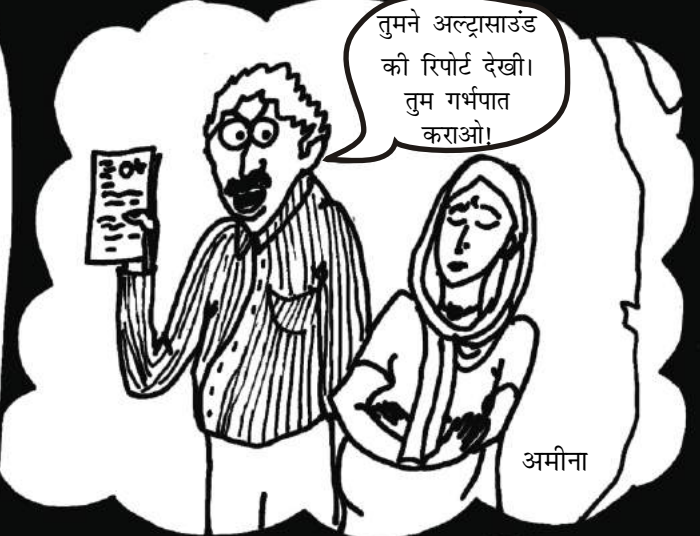 तुमने अल्ट्रासाउंड
की रिपोर्ट देखी।
तुम गर्भपात
कराओ!
अमीना